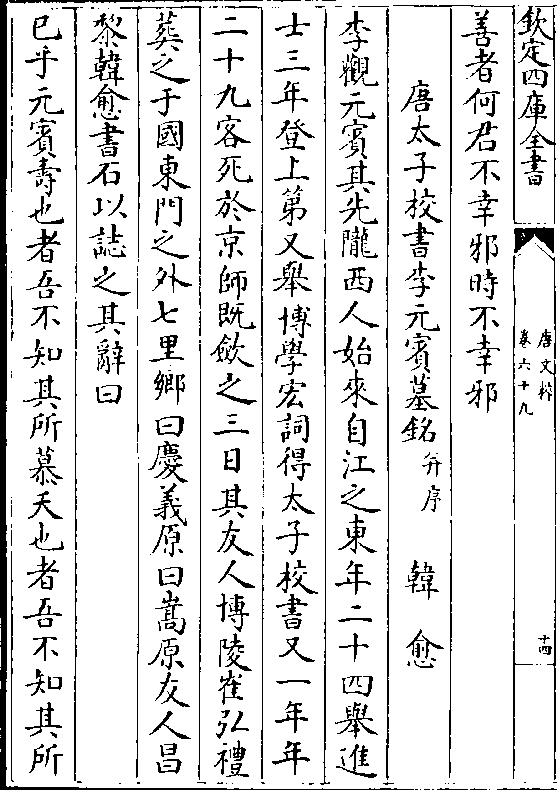 欽定四庫全書
唐文粹
卷六十九
十四
善者何君不幸邪時不幸邪
唐太子校書李元賓墓銘并序 韓愈
李觀元賓其先隴西人始來自江之東年二十四舉進
士三年登上第又舉博學宏詞得太子校書又一年年
二十九客死於京師既斂之三日其友人博陵崔弘禮
葬之于國東門之外七里鄉曰慶義原曰嵩原友人昌
黎韓愈書石以誌之其辭曰
已乎元賓壽也者吾不知其所慕夭也者吾不知其所